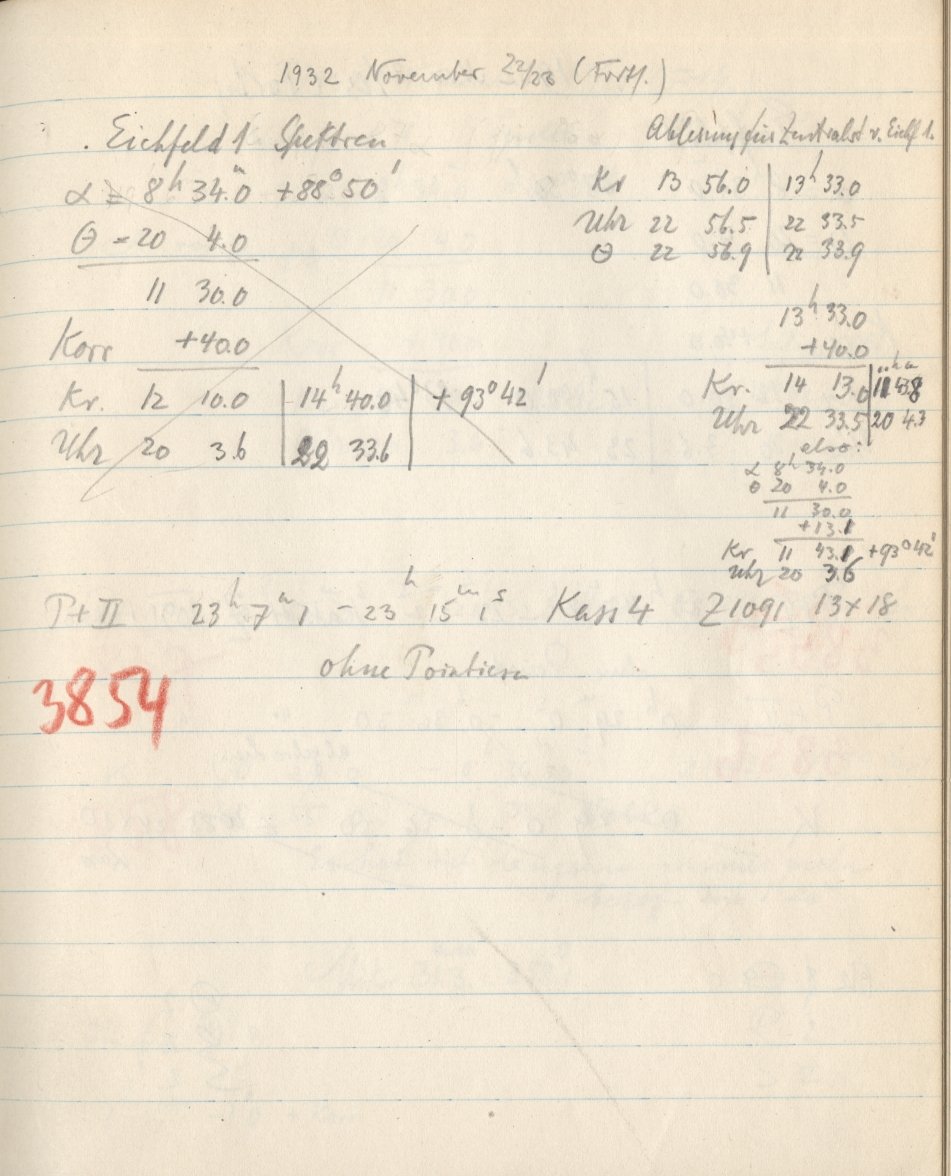 1932 November 22/23 (Forts.)
Eichfeld 1 Spektren
α = 8h 34.m0 +88° 50'
θ = 20 4.0
11 30.0
Korr +40.0
Kr. 12 10.0 | 14h 40.0 | + 93° 42'
Uhr 20 3.6 | 22 33.6
Ablesung für Zentralst v. Eichf 1.
Kr 13 56.0 | 13h 33.0
Uhr 22 56.5 | 22 33.5
θ 22 56.9 | 22 33.9
13h 33.0
+40.0
Kr. 14 13.0
Uhr 22 33.5 | 20 4.3
also:
α 8h 34.0
θ 20 4.0
11 30.0
+13.1
Kr 11 43.1 +93° 42'
Uhr 20 3.6
P+II 23h 7m 1 - 23h 15m 1s Kass 4 Z1091 13x18
ohne Pointieren
3854